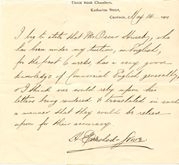 Third Street Chambers,
Katharine Street,
Croydon, May 10
I beg to state that Mr Oscar
has been under my tuition, in English,
for the past 6 weeks & has a very good
knowledge of Commercial English generally.
I think we could rely upon his
letters being rendered & translated in such
a manner that they could be relied
upon for their accuracy.